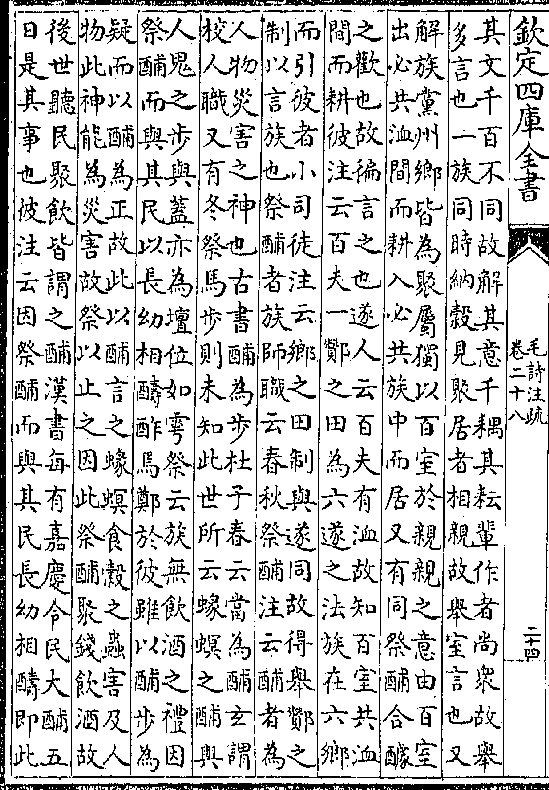 欽定四庫全書
毛詩注疏
卷二十八
二十四
其文千百不同故解其意千耦其耘輩作者尚衆故舉
多言也一族同時納穀見聚居者相親故舉室言也又
解族黨州鄉皆為聚屬獨以百室於親親之意由百室
出必共洫間而耕入必共族中而居又有同祭酺合醵
之歡也故徧言之也遂人云百夫有洫故知百室共洫
間而耕彼注云百夫一酇之田為六遂之法族在六鄉
而引彼者小司徒注云鄉之田制與遂同故得舉酇之
制以言族也祭酺者族師職云春秋祭酺注云酺者為
人物災害之神也古書酺為步杜子春云當為酺玄謂
校人職又有冬祭馬步則未知此世所云蝝螟之酺與
人鬼之步與蓋亦為壇位如雩祭云族無飲酒之禮因
祭酺而與其民以長幼相醻酢焉鄭於彼雖以酺步為
疑而以酺為正故此以酺言之蝝螟食穀之蟲害及人
物此神能為災害故祭以止之因此祭酺聚錢飲酒故
後世聽民聚飲皆謂之酺漢書每有嘉慶令民大酺五
日是其事也彼注云因祭酺而與其民長幼相醻即此